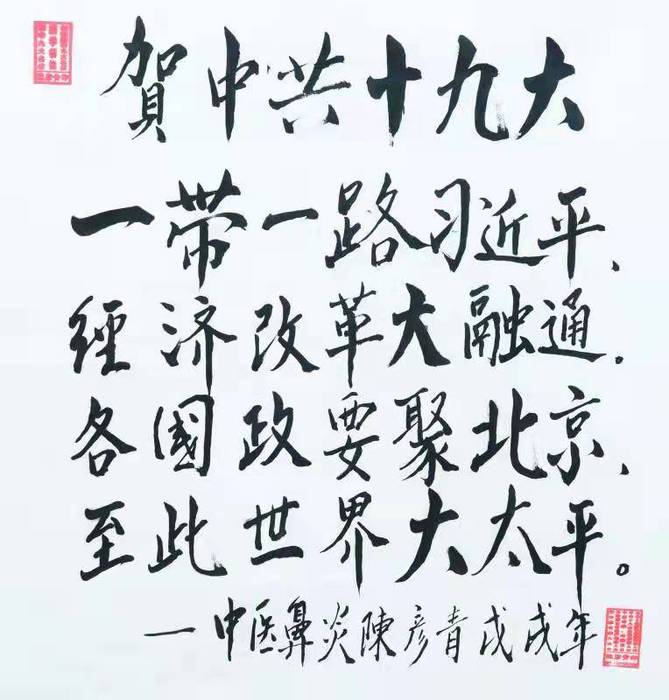 賀中共十九大
一带一路习近平、
經济改革大融通.
各國政要聚北京、
至此世界大太平。
一中医鼻炎陳彦青戊戌年